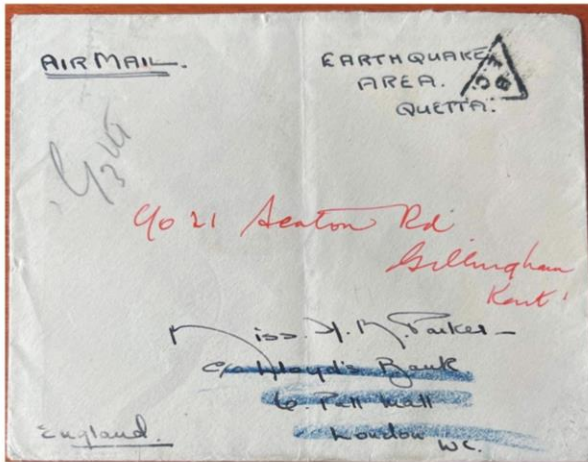 AIR MAIL.
EARTHQUAKE
AREA.
QUETTA.
c/o 21 Seaton Rd
Gillingham
Kent
Miss. Parker
c/o Lloyd's Bank
6. Pall Mall
London WC.
England.